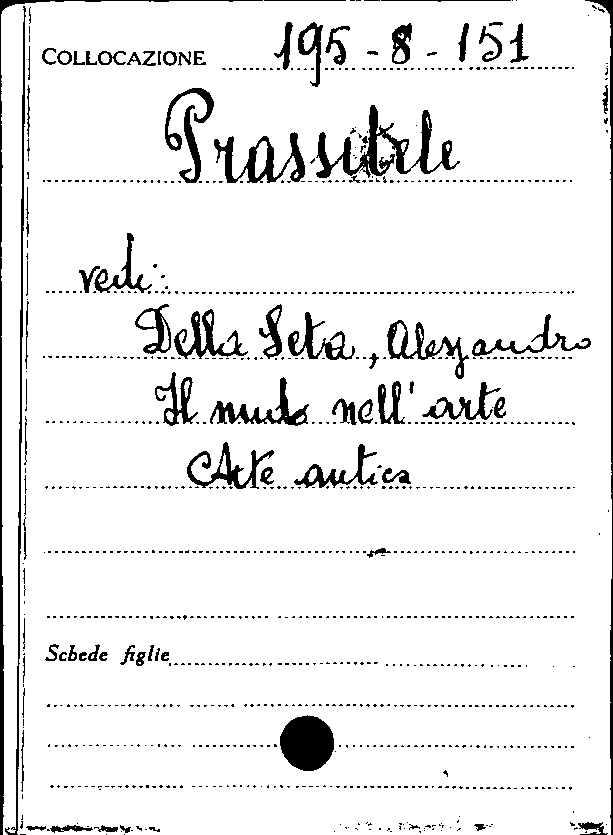 COLLOCAZIONE 195-8-151
Prassitele
vedi:
Della Seta, Alessandro
Il nudo nell'arte
Arte antica
Schede figlie